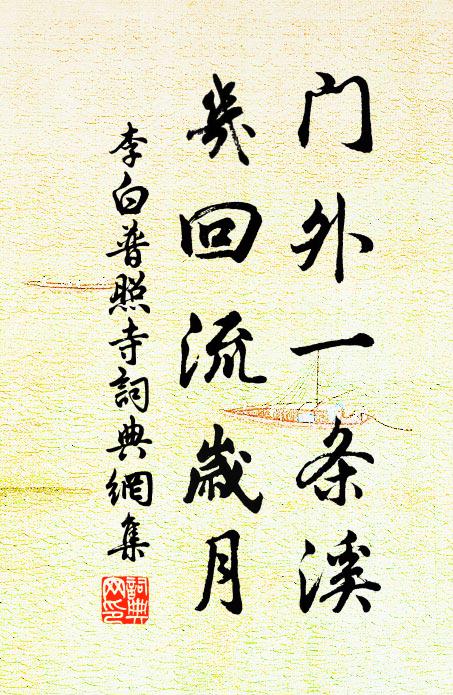 门外一条溪
幾回流歲月
李白普照寺詞典網集
詞典
网印